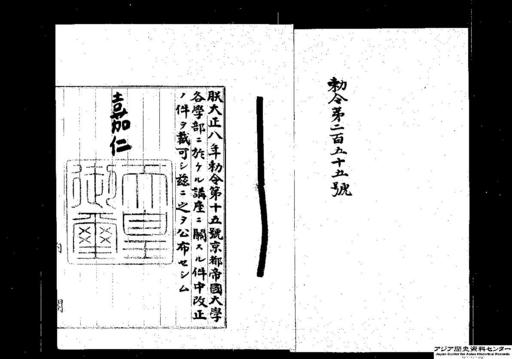 勅令第二百五十五號
朕大正八年勅令第十五號京都帝國大學
各學部ニ於ケル講座ニ關スル件中改正
ノ件ヲ裁可シ茲ニ之ヲ公布セシム
嘉仁
天皇
御璽
内
閣
アジア歴史資料センター
Japan Center for Asian Historical Records